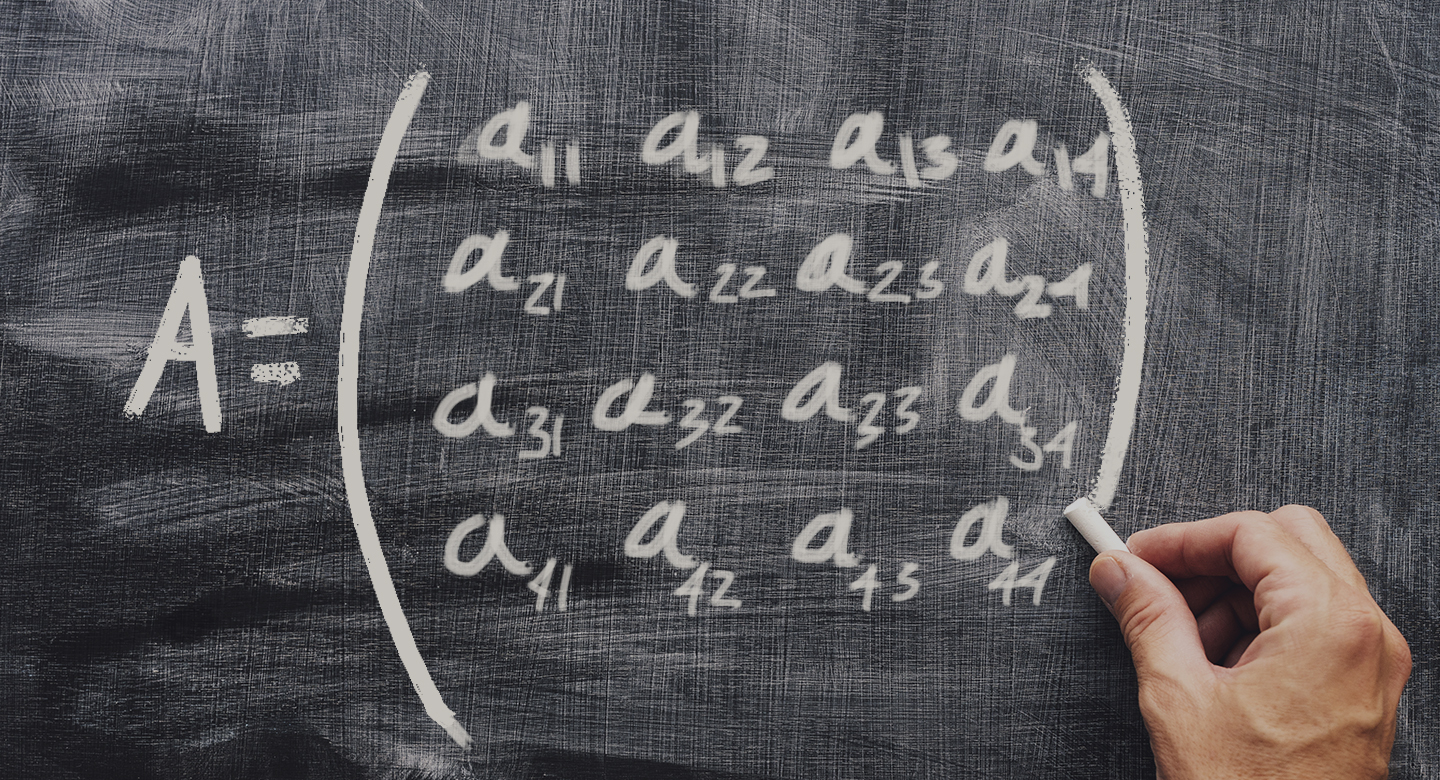 A = (
a11 a12 a13 a14
a21 a22 a23 a24
a31 a32 a33 a34
a41 a42 a43 a44
)